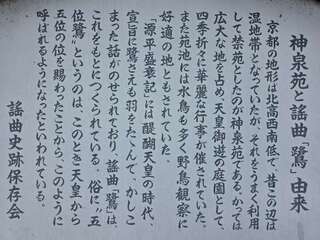 神泉苑と謡曲「鷺」由来
京都の地形は北高西南低で、昔この辺は
湿地帯となっていたが、それをうまく利用
して禁苑としたのが神泉苑である。かつては
広大な地を占め、天皇御遊の庭園として、
四季折々に華麗な行事が催されていた。
また苑池には水鳥も多く野鳥観察に
好適の地ともされていた。
「源平盛衰記」には醍醐天皇の時代、
宣旨に鷺さえも羽をたゝんで、かしこ
まった話がのせられており、謡曲「鷺」は
これをもとにつくられている。俗に、"五
位鷺"というのは、このとき天皇から
五位の位を賜わったことから、このように
呼ばれるようになったといわれている。
謡曲史跡保存会